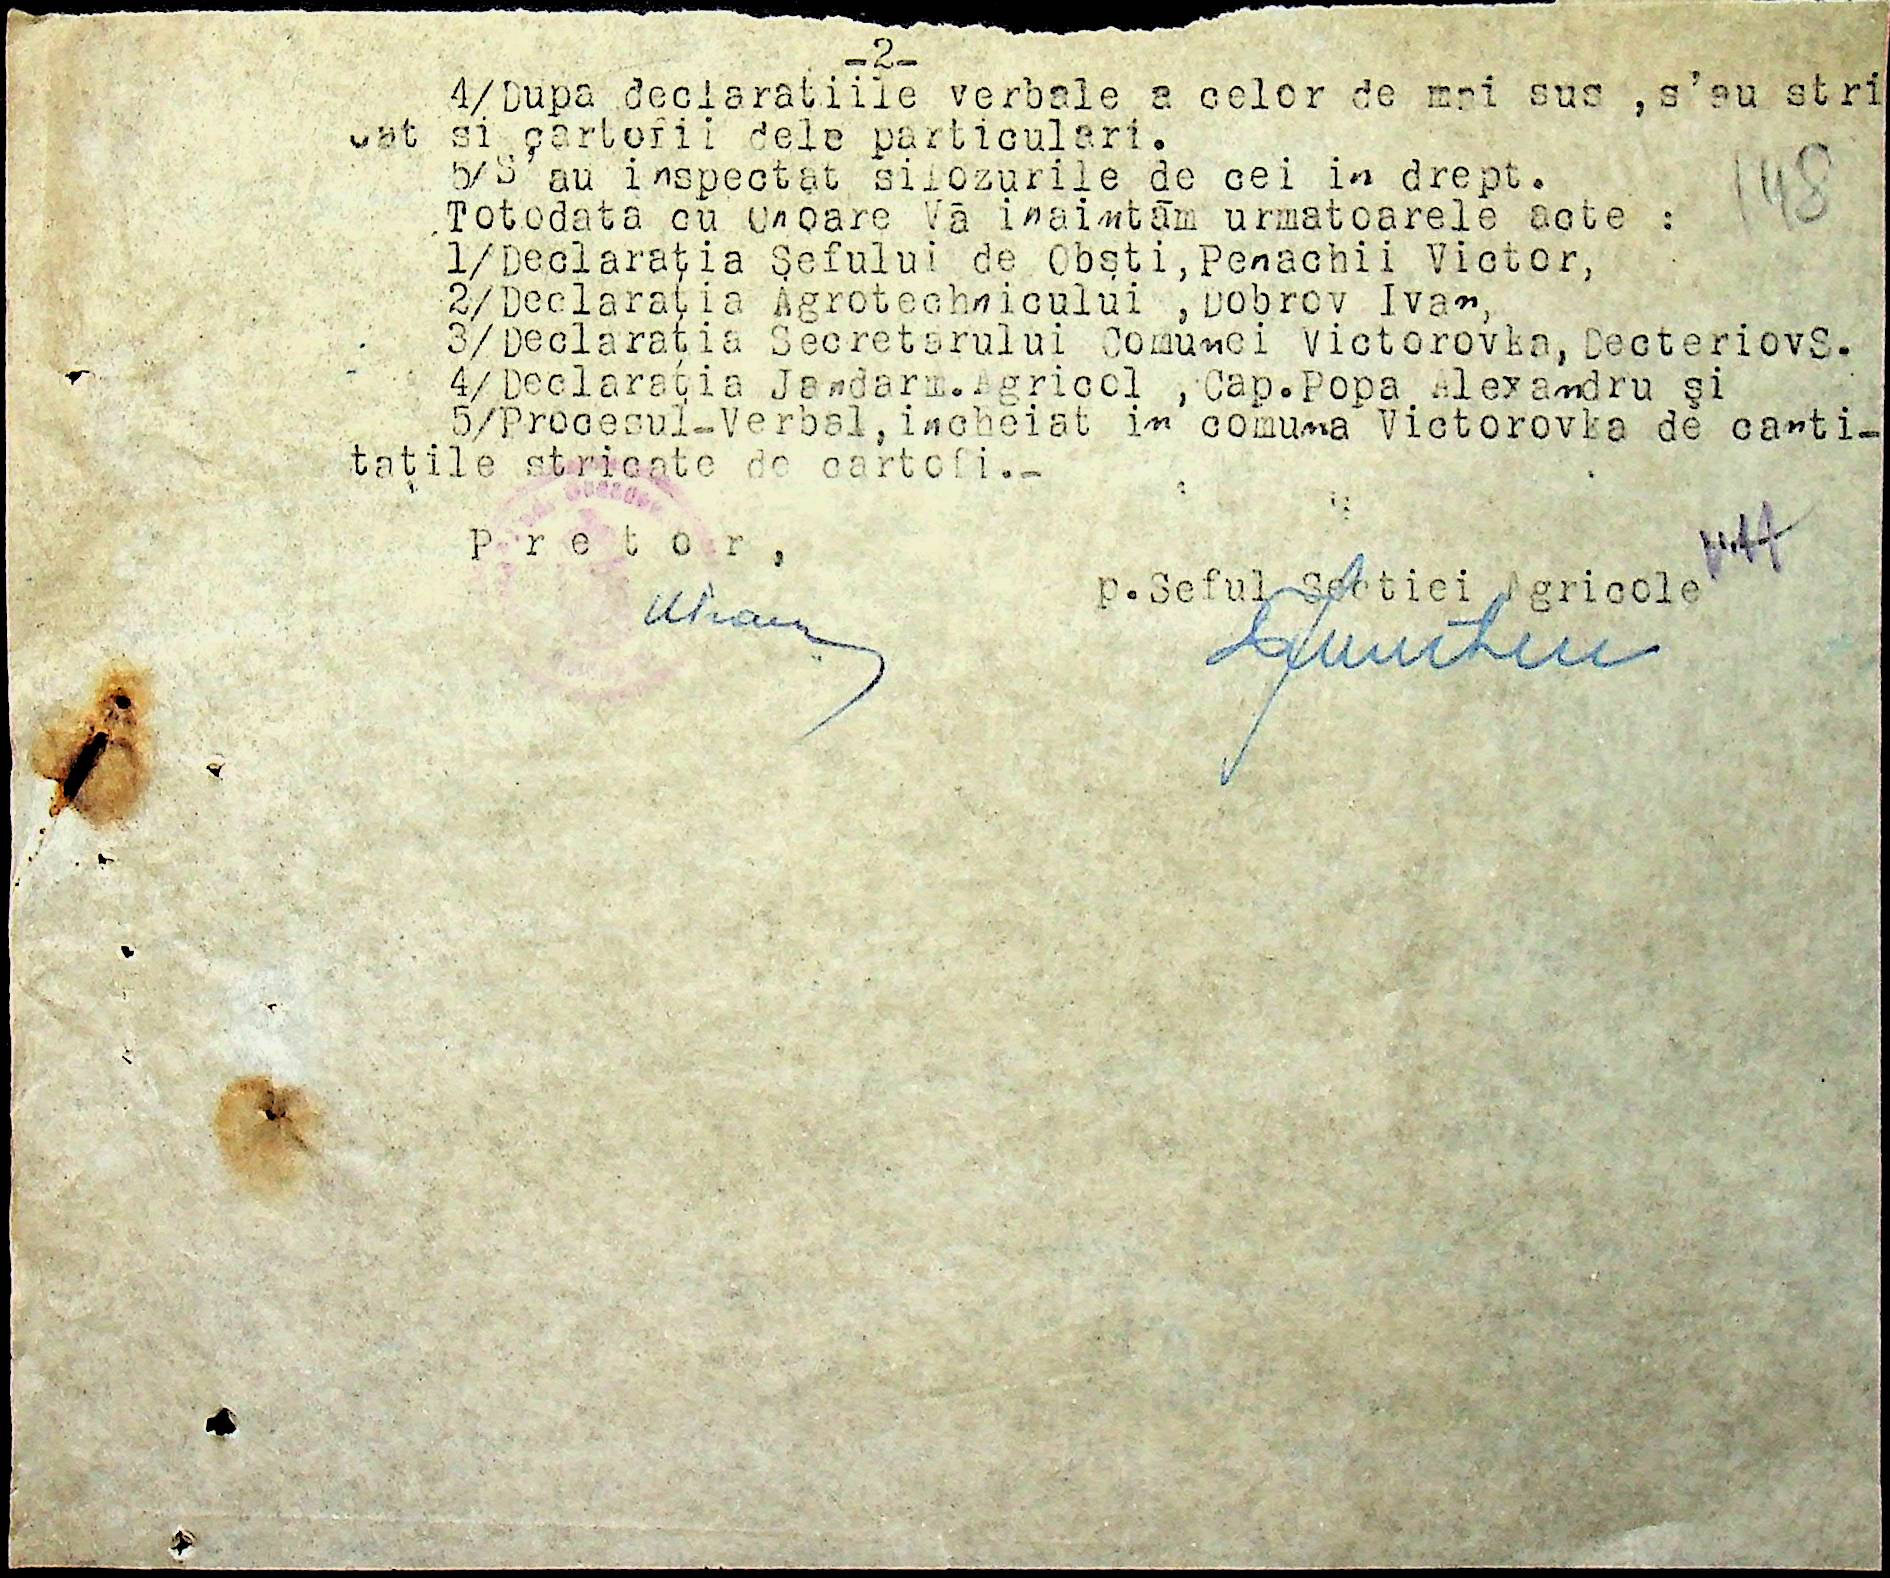 -2-
4/Dupa declaratiile verbale a celor de mai sus ,s'au stri
cat si cartofii dela particulari.
5/S'au inspectat silozurile de cei in drept.
148
Totodata cu Onoare Vă inaintăm urmatoarele acte :
1/Declarația Șefului de Obști,Penachii Victor,
2/Declarația Agrotechnicului ,Dobrov Ivan,
3/Declarația Secretarului Comunei Victorovka,DecteriovS.
4/Declarația Jandarm.Agricol ,Cap.Popa Alexandru și
5/Procesul-Verbal,incheiat in comuna Victorovka de canti-
tațile stricate de cartofi.-
P r e t o r ,
p.Seful Sectiei Agricole